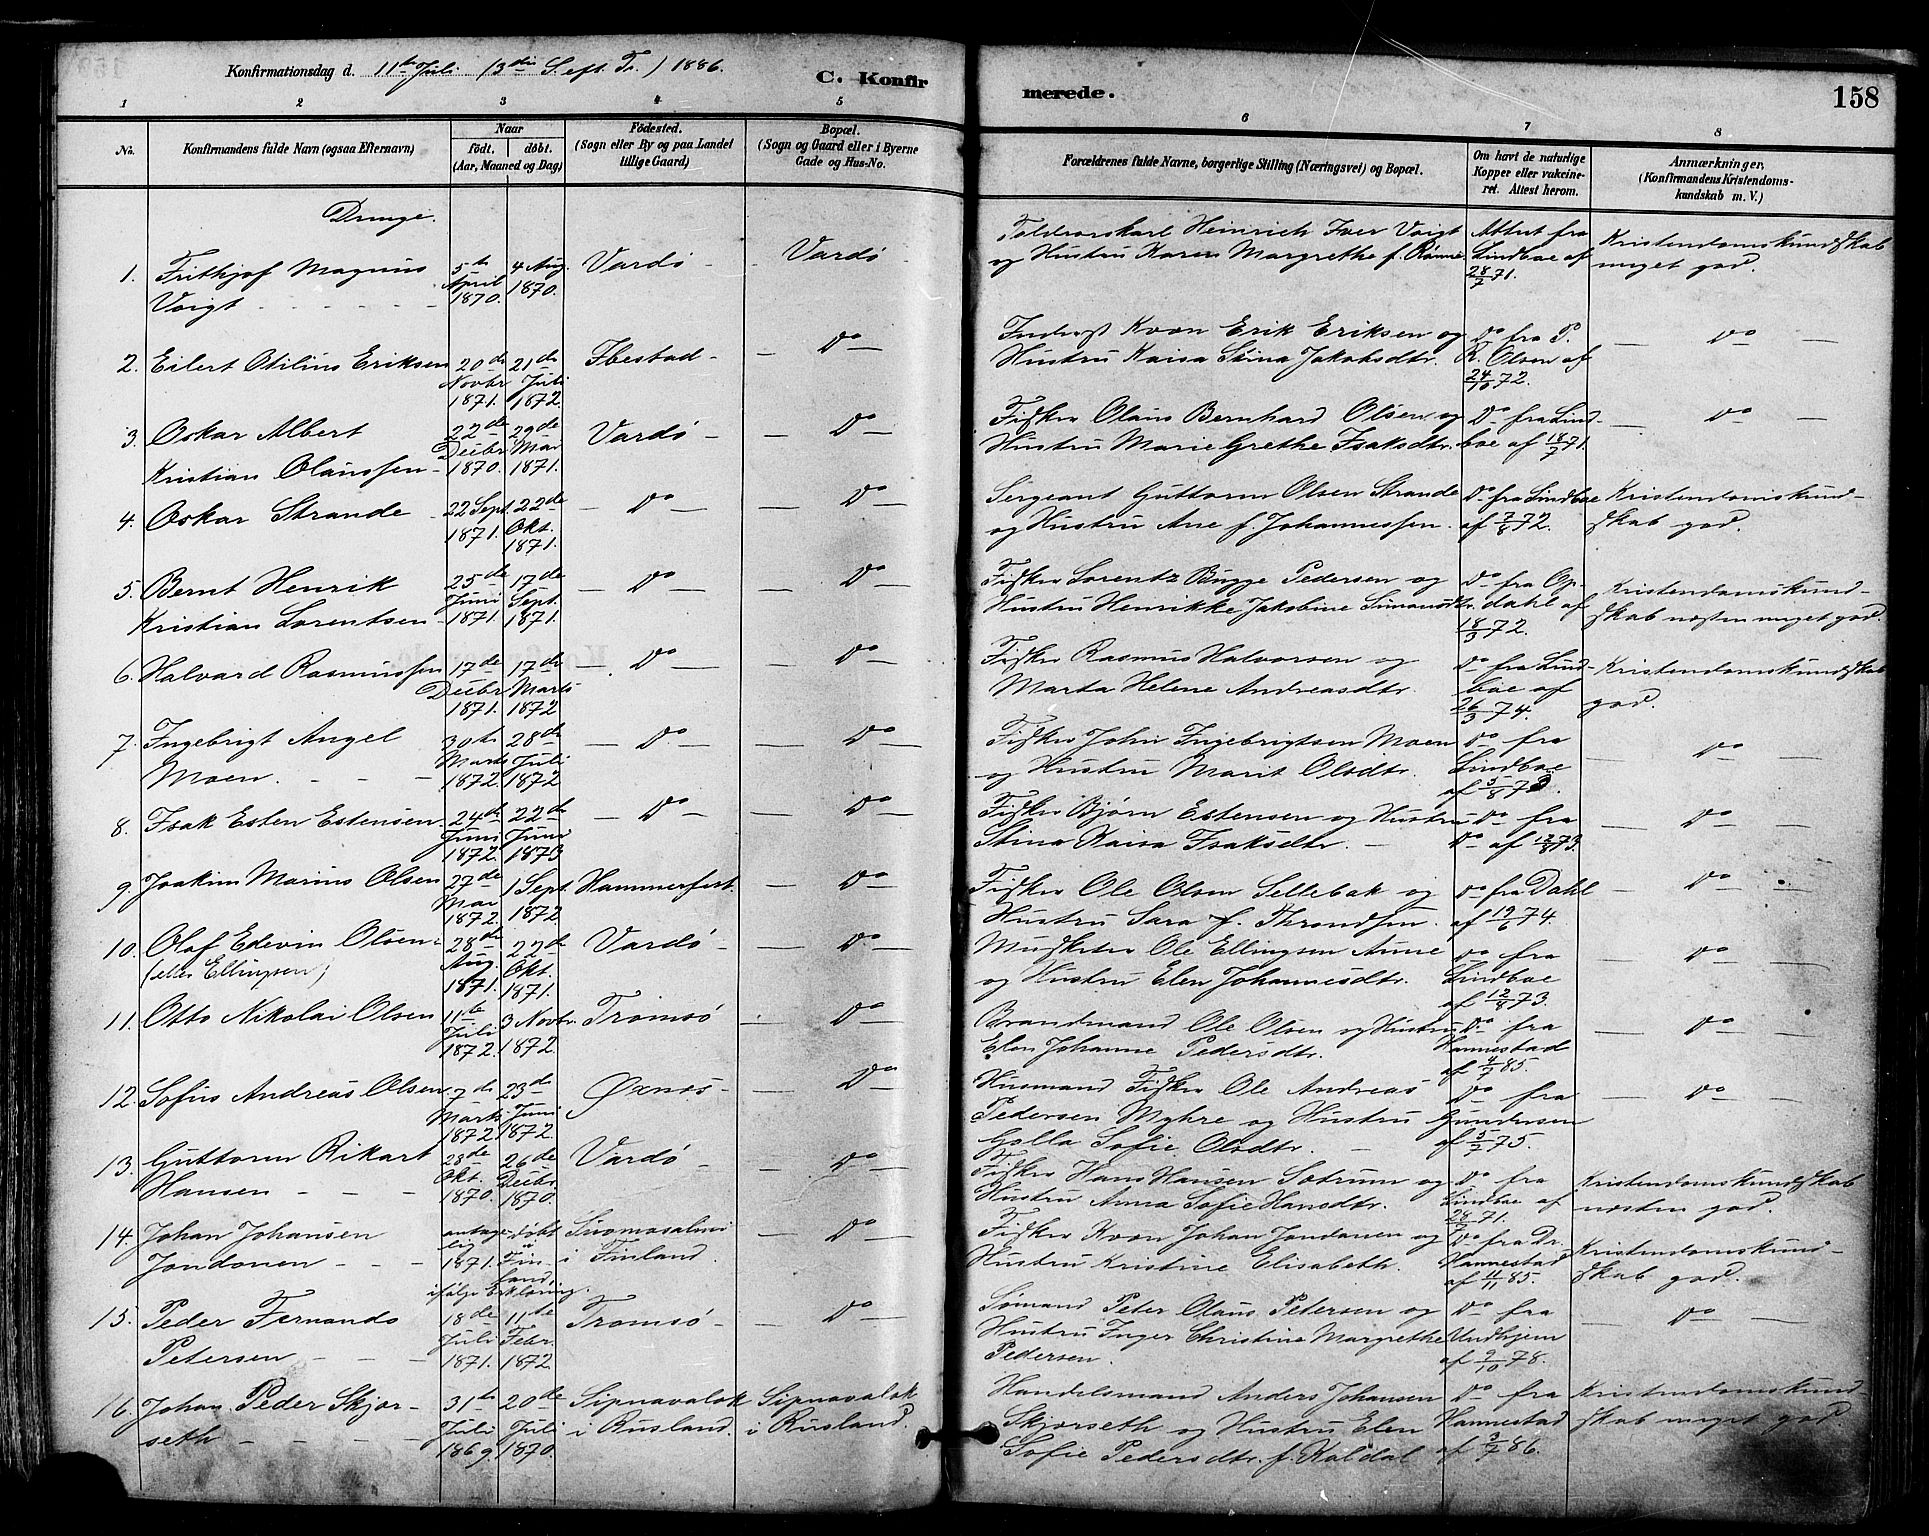 Konfirmationsdag d. 11te Juli (3die S. eft. Tr.) 1886.
C. Konfir
merede.
158
1 2 3 4 5 6 7 8
No.
Konfirmandens fulde Navn (ogsaa Efternavn)
Naar
Födt. döbt.
(Aar, Maaned og Dag)
Födested.
(Sogn eller By og paa Landet
tillige Gaard)
Bopæl.
(Sogn og Gaard eller i Byerne
Gade og Hus-No.
Forældrenes fulde Navne, borgerlige Stilling (Næringsvei) og Bopæl.
Om havt de naturlige
Kopper eller vakcine-
ret. Attest herom.
Anmærkninger,
(Konfirmandens Kristendoms-
kundskab m. V.)
Drenge.
1. Frithjof Magnus
Voigt
5te April 1870.
4 Aug. 1870.
Vardö
Vardö
Toldrorskarl Heinrich Iver Voigt
og Hustru Karen Margrethe f. Rønne
Attest fra
Lindboe af
28/7 71.
Kristendomskundskab
meget god.
2. Eilert Otilius Eriksen
20de Novbr 1871.
21de Juli 1872.
Ibestad
Do
Inderst Kvæn Erik Eriksen og
Hustru Kaisa Stina Jakobsdtr.
Do fra P.
R. Olsen af
24/10 72.
Do
3. Oskar Albert
Kristian Olaussen
22de Decbr 1870.
29de Mar 1871.
Vardö
Do
Fisker Olaus Bernhard Olsen og
Hustru Marie Grethe Isaksdtr.
Do fra Lind-
boe af 18/7 71.
Do
4. Oskar Strande
22 Sept. 1871.
22de Okt. 1871.
Do
Do
Sergeant Guttorm Olsen Strande
og Hustru Ane f. Johannessen.
Do fra Lindboe
af 7/8 72.
Kristendomskund-
skab god.
5. Bernt Henrik
Kristian Lorentsen
25de Juni 1871.
17de Sept. 1871.
Do
Do
Fisker Lorentz Bugge Pedersen og
Hustru Henrikke Jakobine Simonsdtr.
Do fra Op-
dahl af
18/3 72.
Kristendomskund-
skab næsten meget god.
6. Halvard Rasmussen
17de Decbr 1871.
17de Marts 1872
Do
Do
Fisker Rasmus Halvorsen og
Marta Helene Andreasdtr.
Do fra Lind-
boe af
26/3 74.
Kristendomskundskab
god.
7. Ingebrigt Angel
Moen.
30te Marts 1872.
28de Juli 1872
Do
Do
Fisker John Ingebrigtsen Moen
og Hustru Marit Olsdtr.
Do fra
Lindboe
af 5/8 73.
Do
8. Isak Esten Estensen
24de Juni 1872.
22de Juni 1873
Do
Do
Fisker Bjørn Estensen og Hustru
Stina Kaisa Isaksdtr.
Do fra
Do af 12/8 73.
Do
9. Joakim Marius Olsen
27de Mai 1872.
1 Sept. 1872
Hammerfest.
Do
Fisker Ole Olsen Sellebak og
Hustru Sara f. Throndsen.
Do fra Dahl
af 19/6 74.
Do
10. Olaf Edevin Olsen
(eller Ellingsen)
28de Aug. 1871.
22de Okt. 1871.
Vardö
Do
Musketer Ole Ellingsen Aune
og Hustru Elen Johannesdtr.
Do fra
Lindboe
af 12/8 73.
Do
11. Otto Nikolai Olsen
11te Juli 1872.
3 Novbr. 1872.
Tromsö
Do
Brandmand Ole Olsen og Hustru
Elen Johanne Pedersdtr.
Do fra
Hannestad
af 4/7 85.
Do
12. Sofus Andreas Olsen
7de Marts 1872
23de Juni 1872.
Øxnes
Do
Husmand Fisker Ole Andreas
Pedersen Myhre og Hustru
Golla Sofie Olsdtr.
Do fra
Gundersen
af 5/7 75.
Do
13. Guttorm Rikart
Hansen
28de Okt. 1870.
26de Decbr. 1870.
Vardö
Do
Fisker Hans Hansen Sotrum og
Hustru Anna Sofie Hansdtr.
Do fra
Lindboe af
28/7 71.
Kristendomskundskab
næsten god.
14. Johan Johansen
Jondonen
antage-
lig
1871.
døbt
i
Fin-
land,
ifølge Erklæring.
Suomosalmi
i Finland.
Do
Fisker Kvæn Johan Jondonen og
Hustru Kristine Elisabeth.
Do fra Dr.
Hannestad
af 4/11 85.
Kristendomskund-
skab god.
15. Peder Fernando
Petersen
18de Juli 1871.
11te Febr. 1872
Tromsö
Do
Sømand Peter Olaus Petersen og
Hustru Inger Christine Margrethe
Pedersen.
Do fra
Undhjem
af 9/10 78.
Do
16. Johan Peder Skjor-
seth
31te Juli 1869.
20de Juli 1870.
Sipnavalok
i Rusland.
Sipnavalok
i Rusland.
Handelsmand Anders Johansen
Skjorseth og Hustru Elen
Sofie Pedersdtr. f. Kaldal
Do fra
Hannestad
af 3/7 86.
Kristendomskund-
skab meget god.